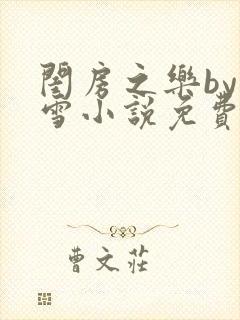 閨房之樂by
雪小說免費
曹文莊